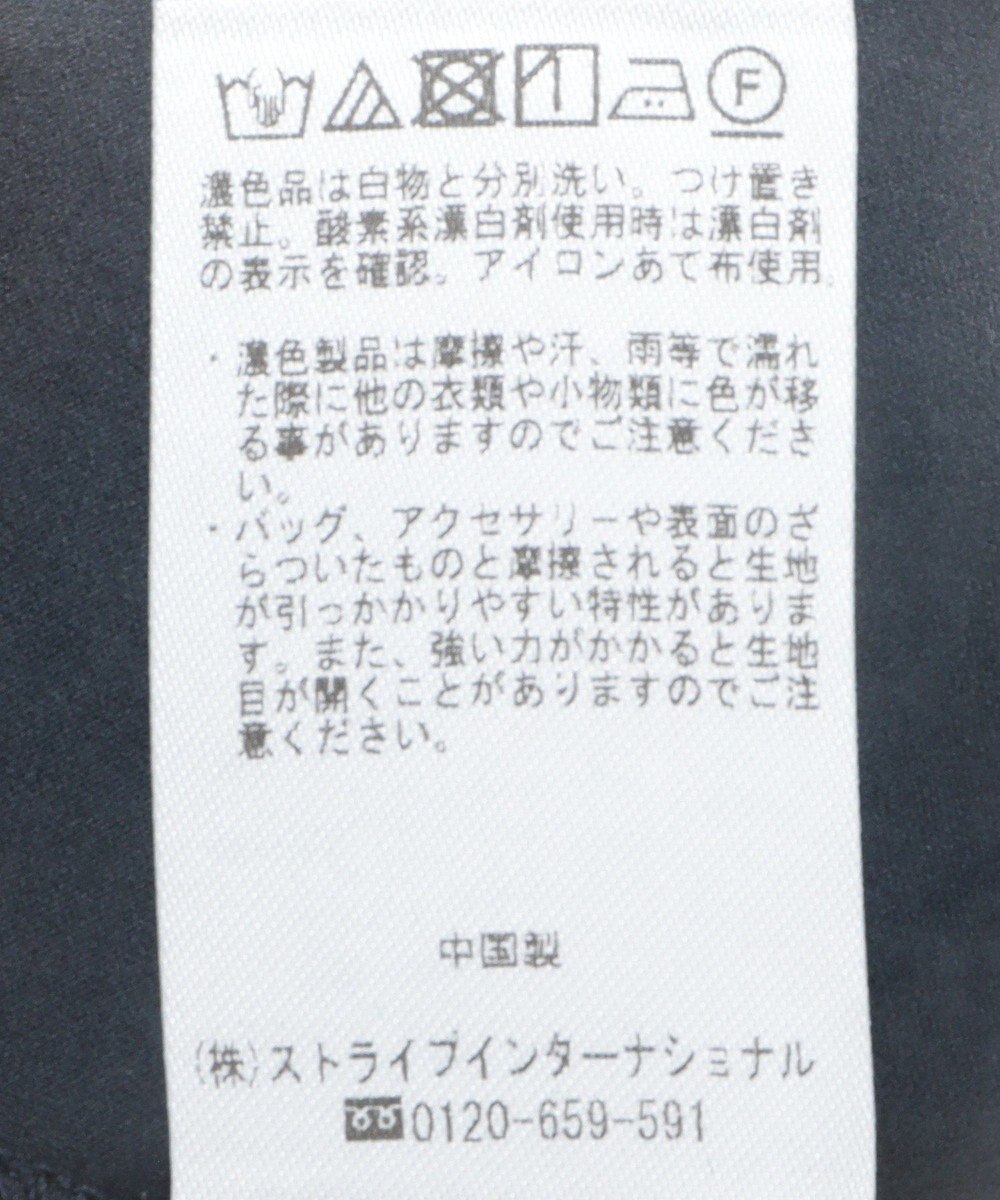 F
濃色品は白物と分別洗い。つけ置き
禁止。酸素系漂白剤使用時は漂白剤
の表示を確認。アイロンあて布使用。
・濃色製品は摩擦や汗、雨等で濡れ
た際に他の衣類や小物類に色が移
る事がありますのでご注意くださ
い。
・バッグ、アクセサリーや表面のざ
らついたものと摩擦されると生地
が引っかかりやすい特性がありま
す。また、強い力がかかると生地
目が開くことがありますのでご注
意ください。
中国製
(株)ストライプインターナショナル
0120-659-591